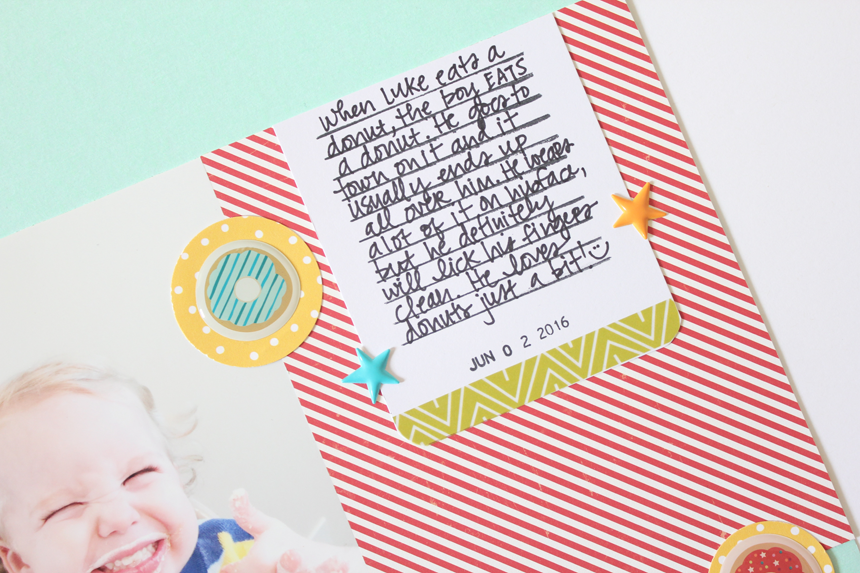 When Luke eats a
donut, the boy EATS
a donut. He goes to
town on it and it
usually ends up
all over him. He wears
a lot of it on his face,
but he definitely
will lick his fingers
clean. He loves
donuts just a bit!
JUN 0 2 2016